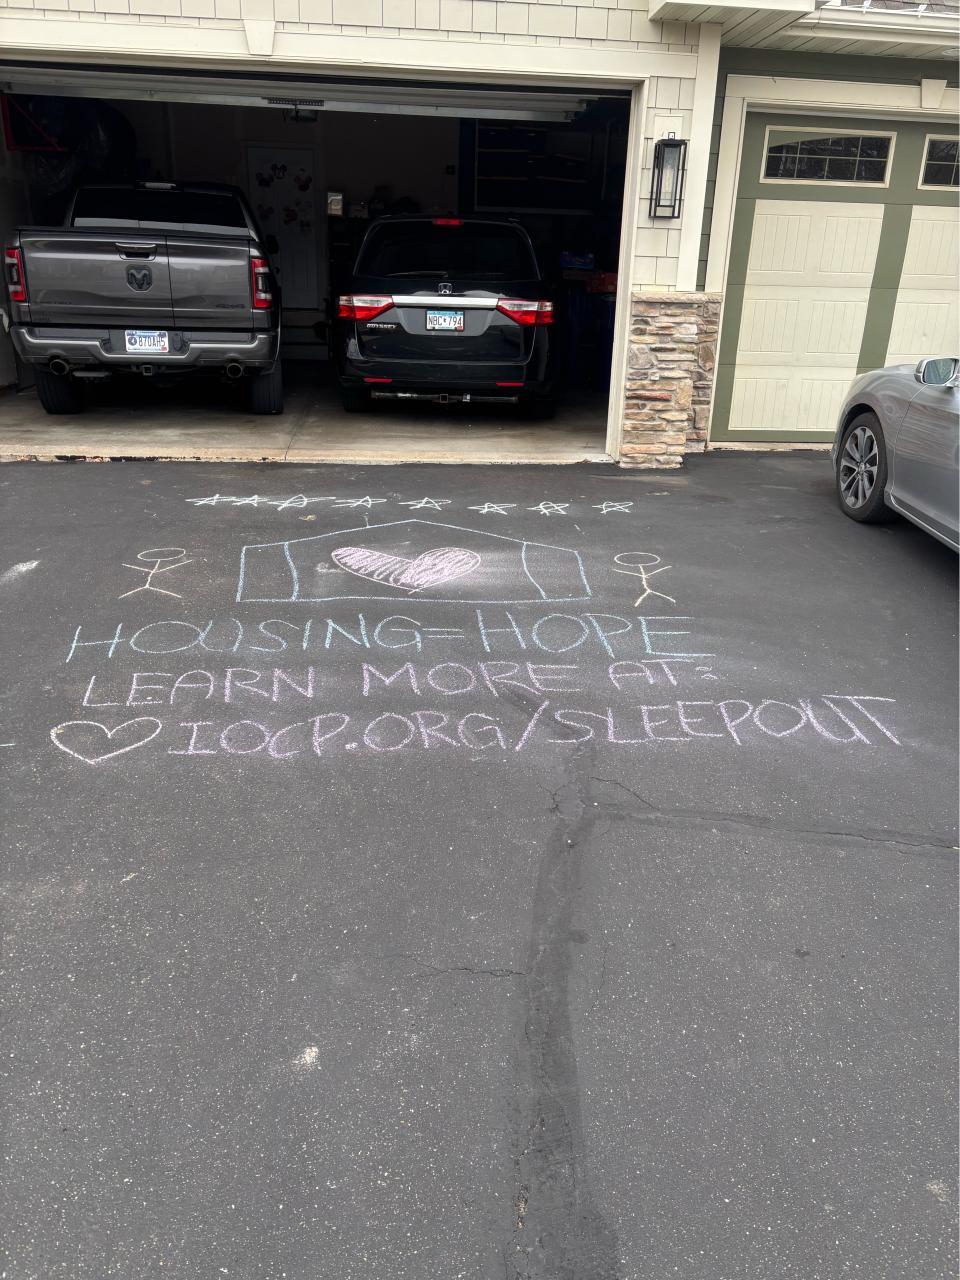 870AH5
ODYSSEY
NBC 794
HOUSING=HOPE
LEARN MORE AT:
IOCP.ORG/SLEEPOUT